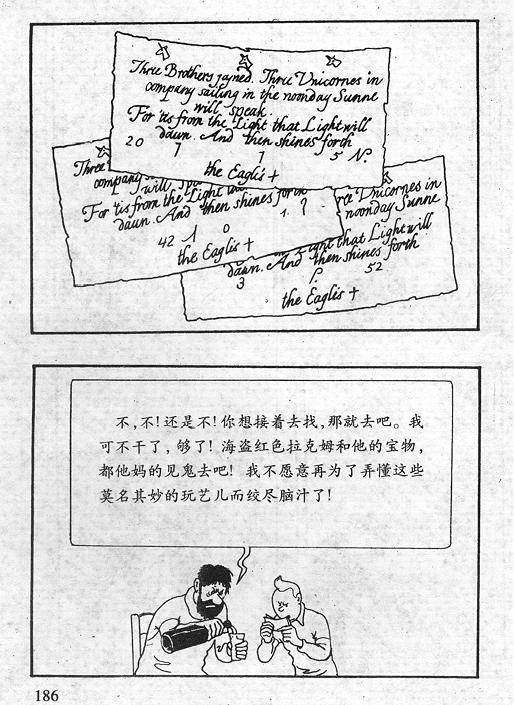 Three Brothers joyned. Three Unicornes in
company sailing in the noonday Sunne
will speak.
For 'tis from the Light that Light will
dawn. And then shines forth
20 7 1 5 N.
the Eagles +
Three
company
will
For 'tis from the Light
dawn. And then shines forth
42 1 0 1.
the Eagles +
Unicornes in
noonday Sunne
Light that Light will
dawn. And then shines forth
3 52
the Eagles +
不,不!还是不!你想接着去找,那就去吧。我
可不干了,够了!海盗红色拉克姆和他的宝物,
都他妈的见鬼去吧!我不愿意再为了弄懂这些
莫名其妙的玩艺儿而绞尽脑汁了!
186